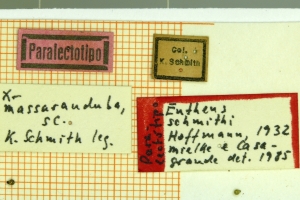 Paralectotipo
Col.
K. Schmith
X-
massaranduba,
SC.
K. Schmith leg.
Para
lectotipo
Entheus
schmithi
Hoffmann, 1932
mielke e Casa-
grande det. 1985